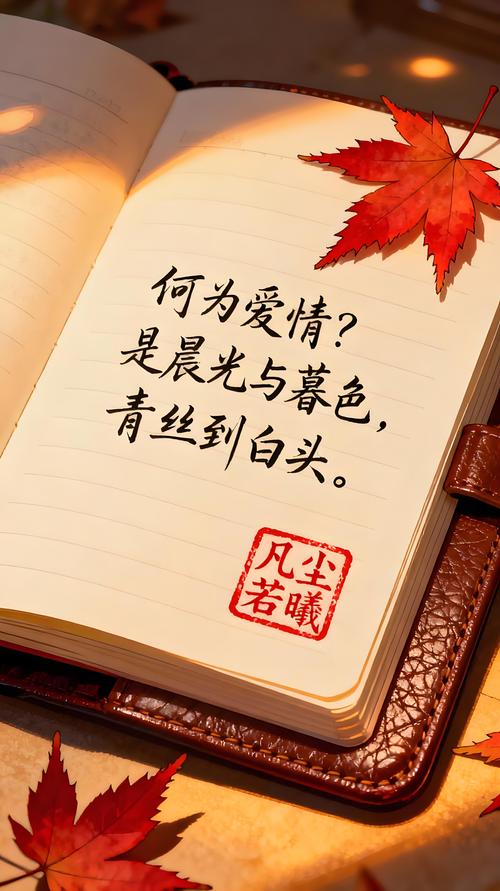 何为爱情?
是晨光与暮色,
青丝到白头。
凡尘
若曦